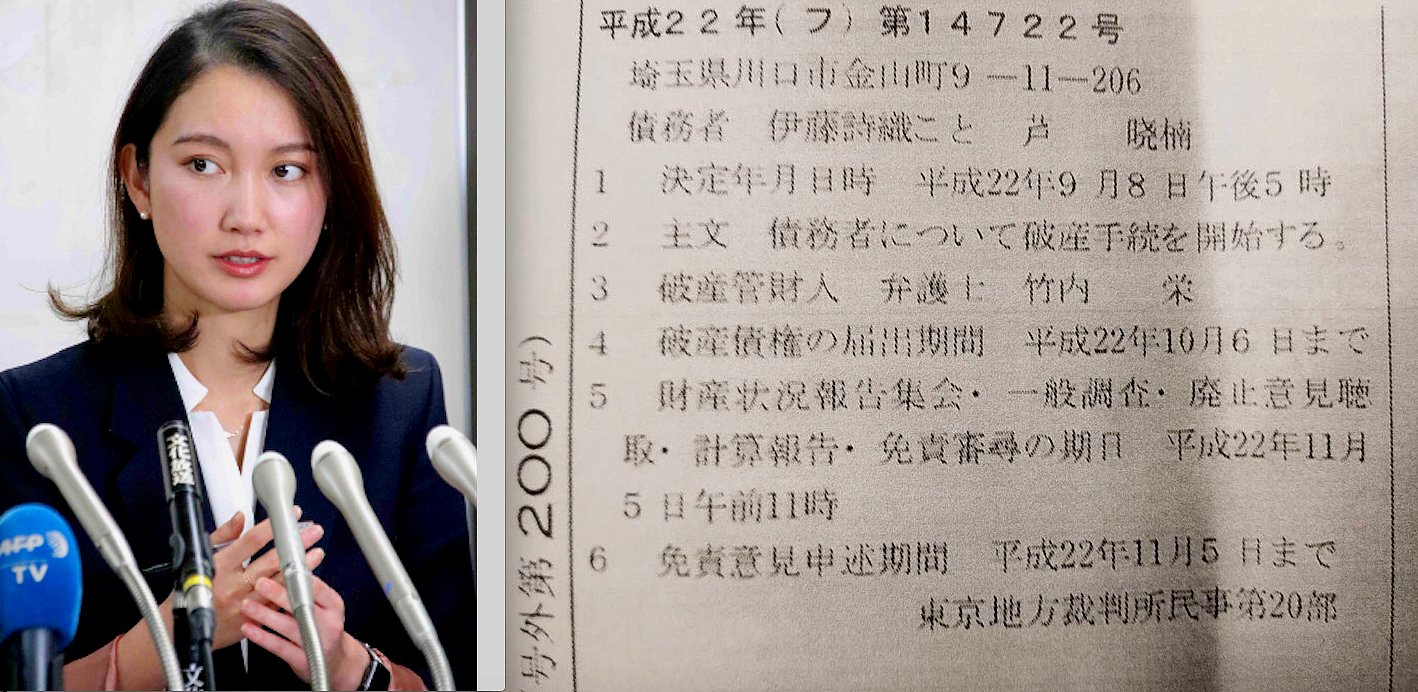 AFP
TV
文化放送
文
平成22年(フ)第14722号
埼玉県川口市金山町9—11—206
債務者 伊藤詩織こと 芦 暁楠
1 決定年月日時 平成22年9月8日午後5時
2 主文 債務者について破産手続を開始する。
3 破産管財人 弁護士 竹内 栄
4 破産債権の届出期間 平成22年10月6日まで
5 財産状況報告集会・一般調査・廃止意見聴
取・計算報告・免責審尋の期日 平成22年11月
5日午前11時
6 免責意見申述期間 平成22年11月5日まで
東京地方裁判所民事第20部
号外第200号)